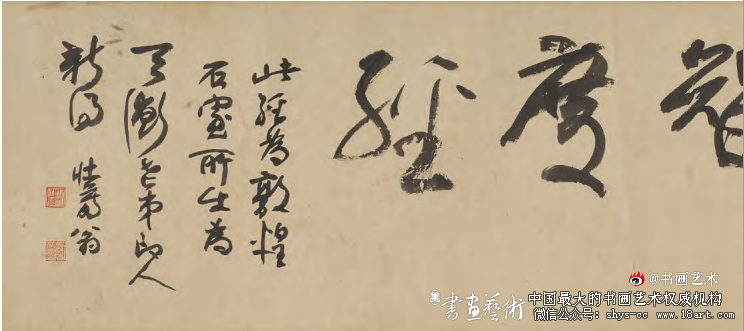 度經
此經為敦煌
石室所出為
天衡老弟印人
新得 壯暮翁
@书画艺术
書畫藝術
中国最大的书画艺术权威机构
微信公众号: shys-cc www.18art.com